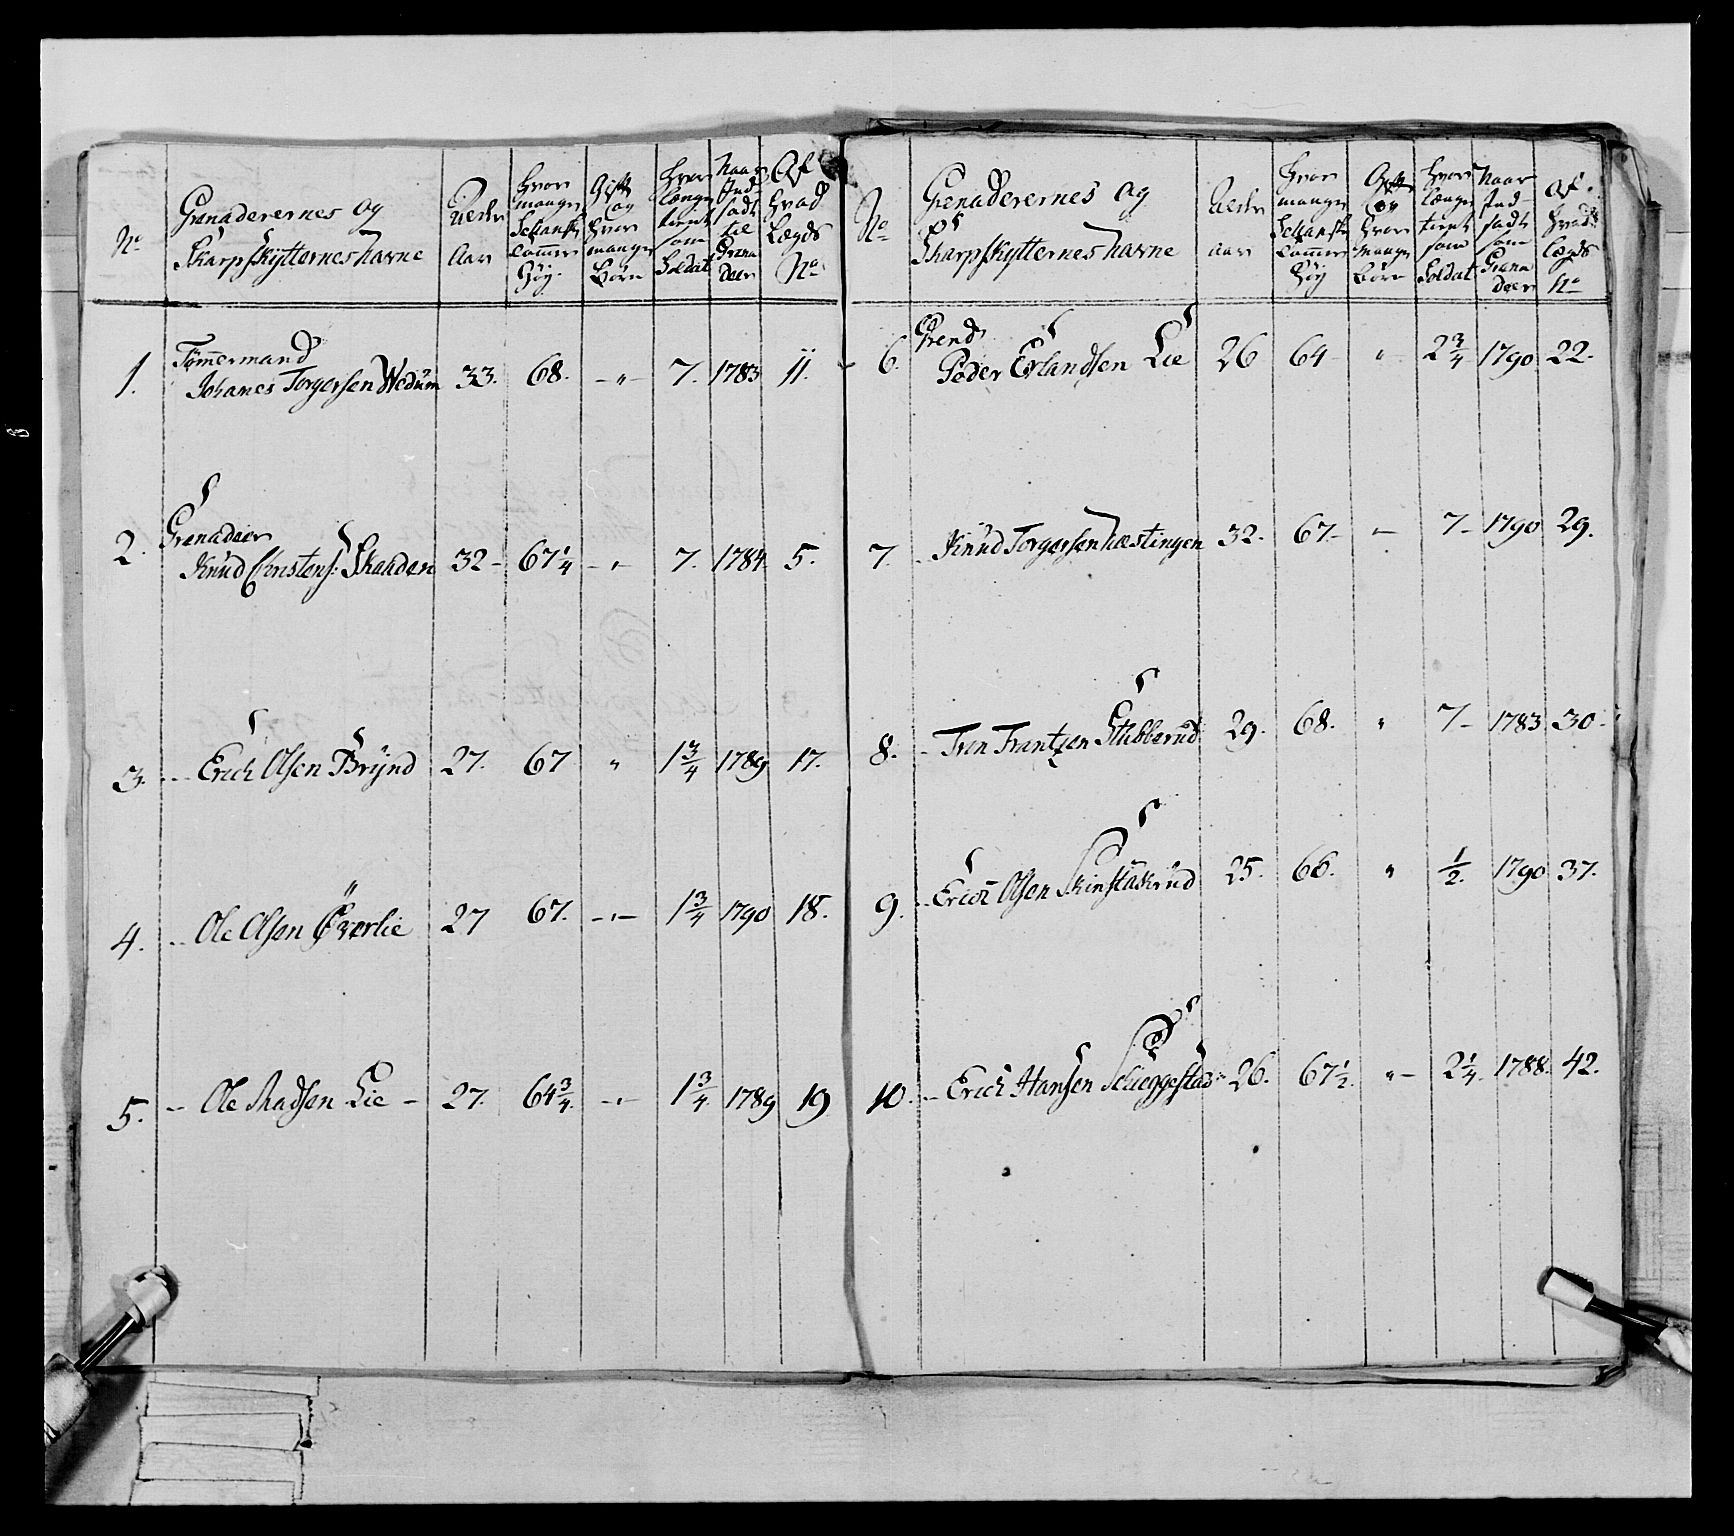 No
Grenaderernes og
Skarpskytternes Navne
Alder
Aar
Hvor
mange
Schansk
Tommer
Høy
Gift
og
hvor
mange
Børn
Hvor
længe
tient
som
Soldat
Naar
Ind-
sadt
til
Grena
deer
Af
hvad
Lægds
No
1. Tømmermand
Johanes Torgersen Wedum 33. 68. -"- 7. 1783 11.
2. Grenadeer
Knud Christens: Skaaden 32- 67 1/4 -"- 7. 1784 5.
3. -- Erich Olsen Brynd 27. 67 " 1 3/4 1789 17.
4. -- Ole Olsen Øverlie 27 67. -"- 1 3/4 1790 18.
5. -- Ole Madsen Lie - 27. 64 3/4. -"- 1 3/4 1789 19
No
Grenaderernes og
Skarpskytternes Navne
Alder
aar
Hvor
mange
Schansk
Tommer
Høy
Gift
og
hvor
mange
Børn
Hvor
længe
tient
som
Soldat
Naar
Ind-
sadt
som
Grena
deer
Af
hvad
Lægds
No
6. Grend
Peder Erlandsen Lie 26 64- " 2 3/4 1790 22.
7. - Knud Torgersen Næstingen 32. 67- - 7- 1790 29.
8. - Iven Frantzen Stubberud 29. 68. " 7- 1783 30-
9. - Erich Olsen 25. 66. " 1/2. 1790 37.
10. - Erich Hansen Schieggestad 26. 67 1/2. "- 2 1/4. 1788. 42.